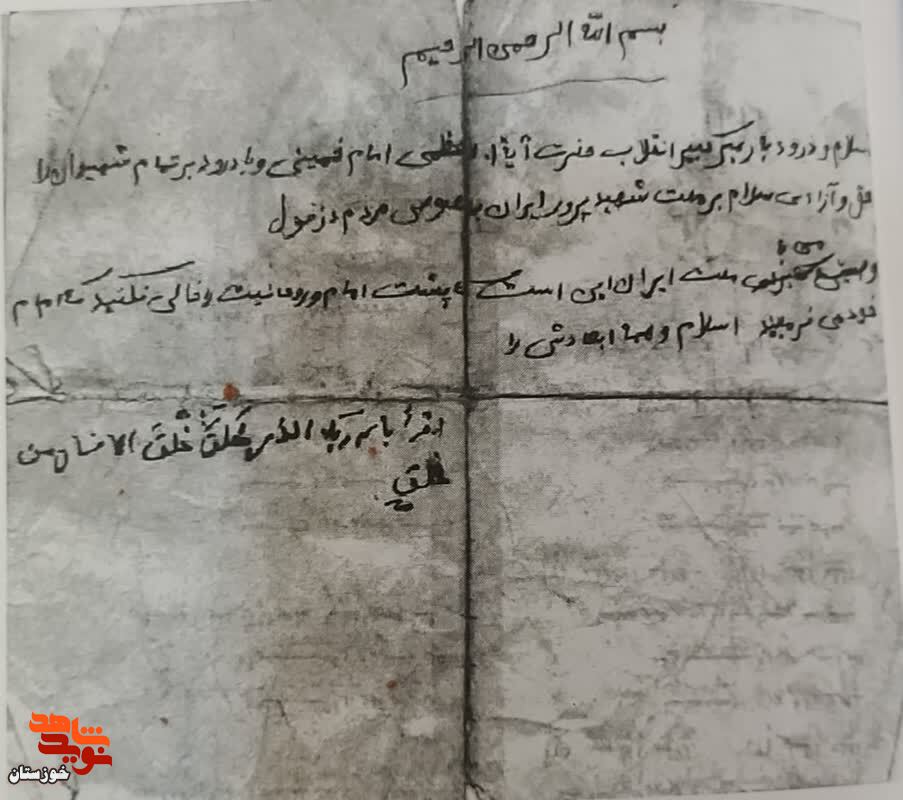 بسم الله الرحمن الرحیم
سلام و درود بار رهبر کبیر انقلاب حضرت آیة ا. العظمی امام خمینی و با درود بر تمام شهیدان راه
حق و آزادی سلام بر ملت شهید پرور ایران بخصوص مردم دزفول
می با
ملت ایران این است که پشت امام و روحانیت را خالی نکنید که امام
خود می فرمیند اسلام و همه ابعادش را
اقرأ باسم ربک الذی خَلَقَ خَلَقَ الانسان من
علق
شاهد
نوید
خوزستان